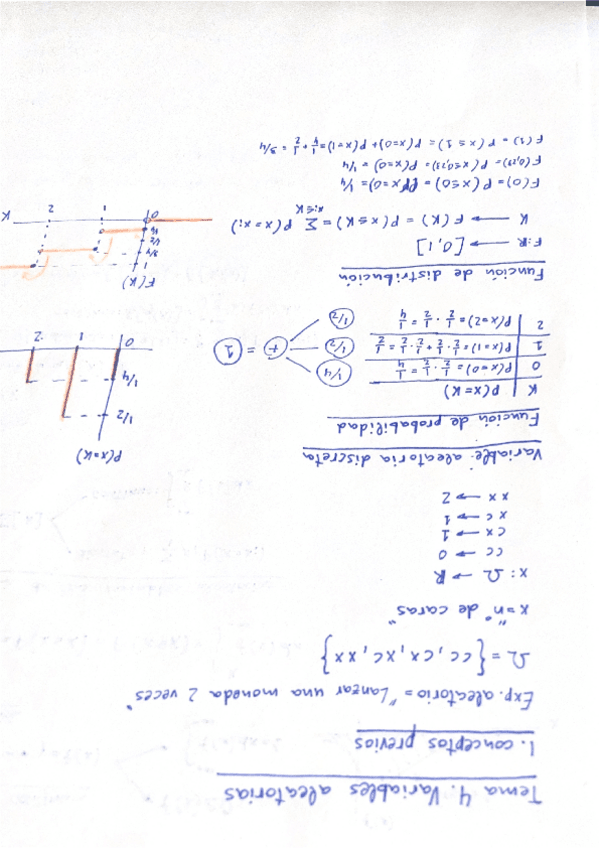 Tema 4. Variables aleatorias
1. conceptos previos
Exp. aleatorio = "Lanzar una moneda 2 veces"
Ω = {cc, cx, xc, xx}
x = "nº de caras"
x: Ω → R
cc → 0
cx → 1
xc → 1
xx → 2
Variable aleatoria discreta
Función de probabilidad
K | P(x=K)
0 | P(x=0) = 1/2 · 1/2 = 1/4
1 | P(x=1) = 1/2 · 1/2 + 1/2 · 1/2 = 1/2
2 | P(x=2) = 1/2 · 1/2 = 1/4
1/4
1/2 + = 1
1/2
P(x=K)
1/2
1/4
0 1 2
Función de distribución
F: R → [0,1]
K → F(K) = P(x ≤ K) = Σ P(x = xi)
xi ≤ K
F(0) = P(x ≤ 0) = P(x=0) = 1/4
F(0,23) = P(x ≤ 0,23) = P(x=0) = 1/4
F(1) = P(x ≤ 1) = P(x=0) + P(x=1) = 1/4 + 1/2 = 3/4
F(K)
1
3/4
1/2
1/4
0 1 2 K